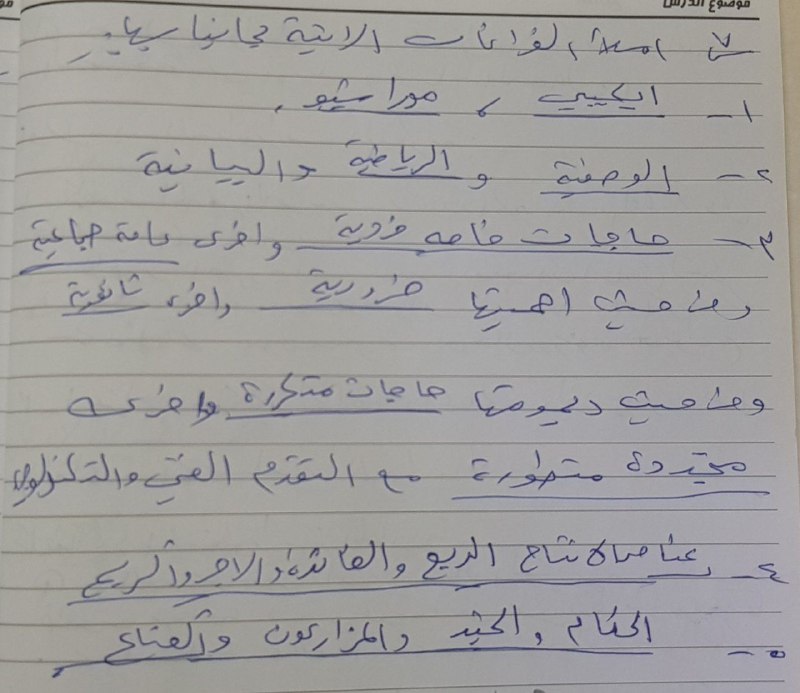 موضوع الدرس
س٧ املأ الفراغات الاتية بما يناسبها:
١- ايكيبي ، موراشيو .
٢- الوصفية و الرياضية والبيانية
٣- حاجات خاصه فردية واخرى عامة جماعية
ومن حيث اهميتها ضرورية واخرى ثانوية
ومن حيث ديمومتها حاجات متكررة واخرى
متجددة متطورة مع التقدم الفني والتكنولوجي
٤- عناصر الانتاج الريع والفائدة والاجر والربح
٥- الحكام والجند والمزارعون والصناع